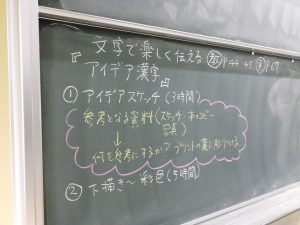 文字で楽しく伝える 教P44 45 資P67
『アイデア漢字』
① アイデアスケッチ(3時間)
参考となる資料(スケッチ・本のコピー
写真)
↓
何を参考にするか? プリントの裏に貼
② 下描き〜彩色(5時間)